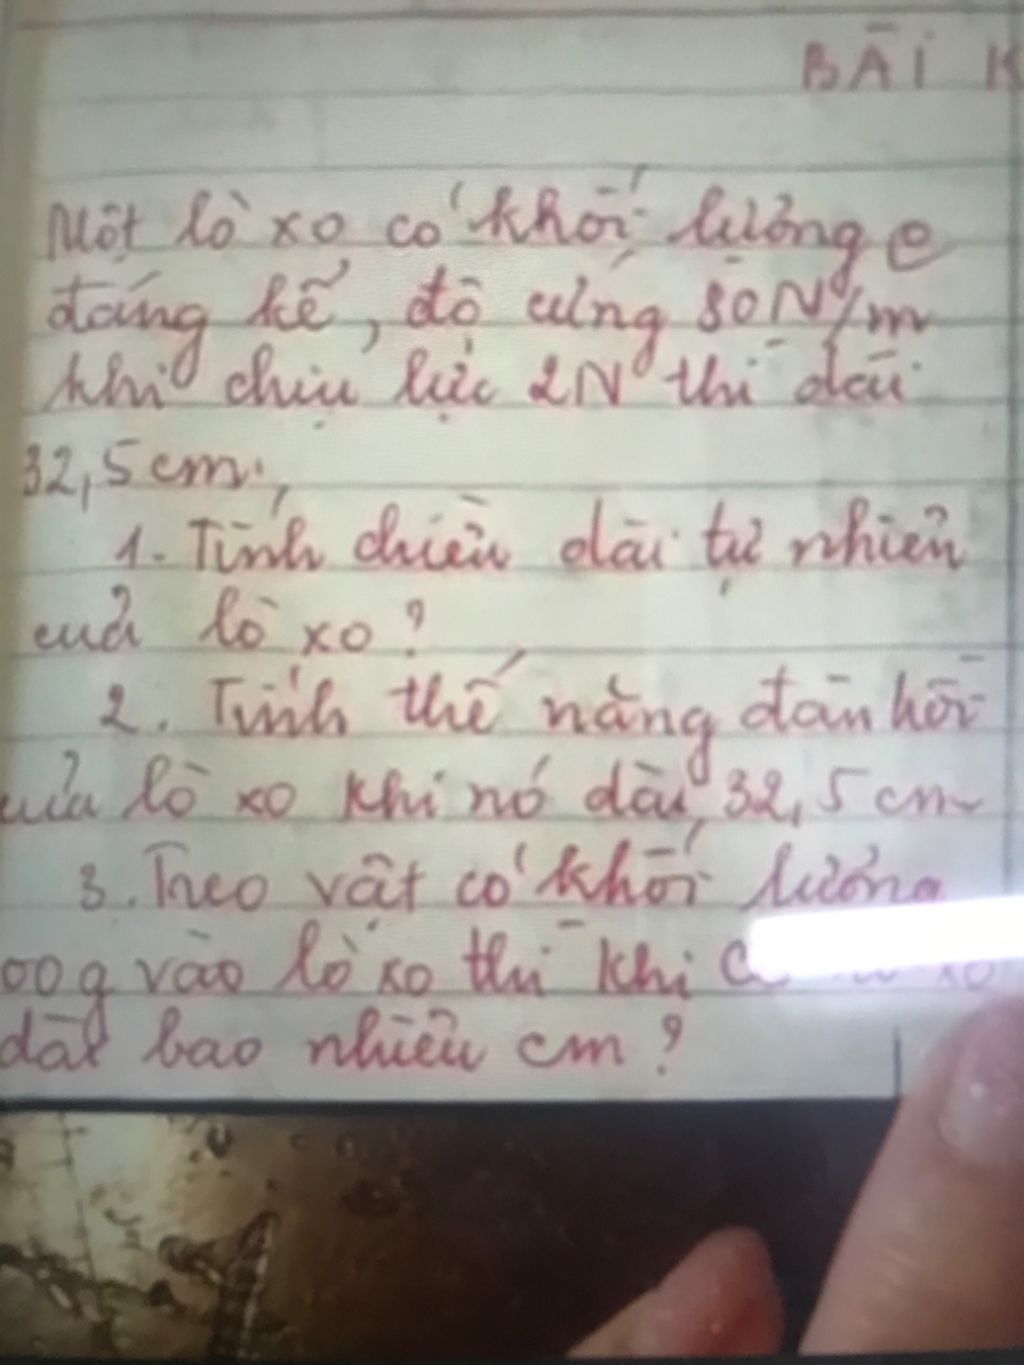 BÀI K
Một lò xo có khối lượng ℮
đáng kể, độ cứng 80N/m
khi chịu lực 2N thì dài
32,5cm.
1. Tính chiều dài tự nhiên
của lò xo?
2. Tính thế năng đàn hồi
của lò xo khi nó dài 32,5cm
3. Treo vật có khối lượng
00g vào lò xo thì khi xo
dài bao nhiêu cm?